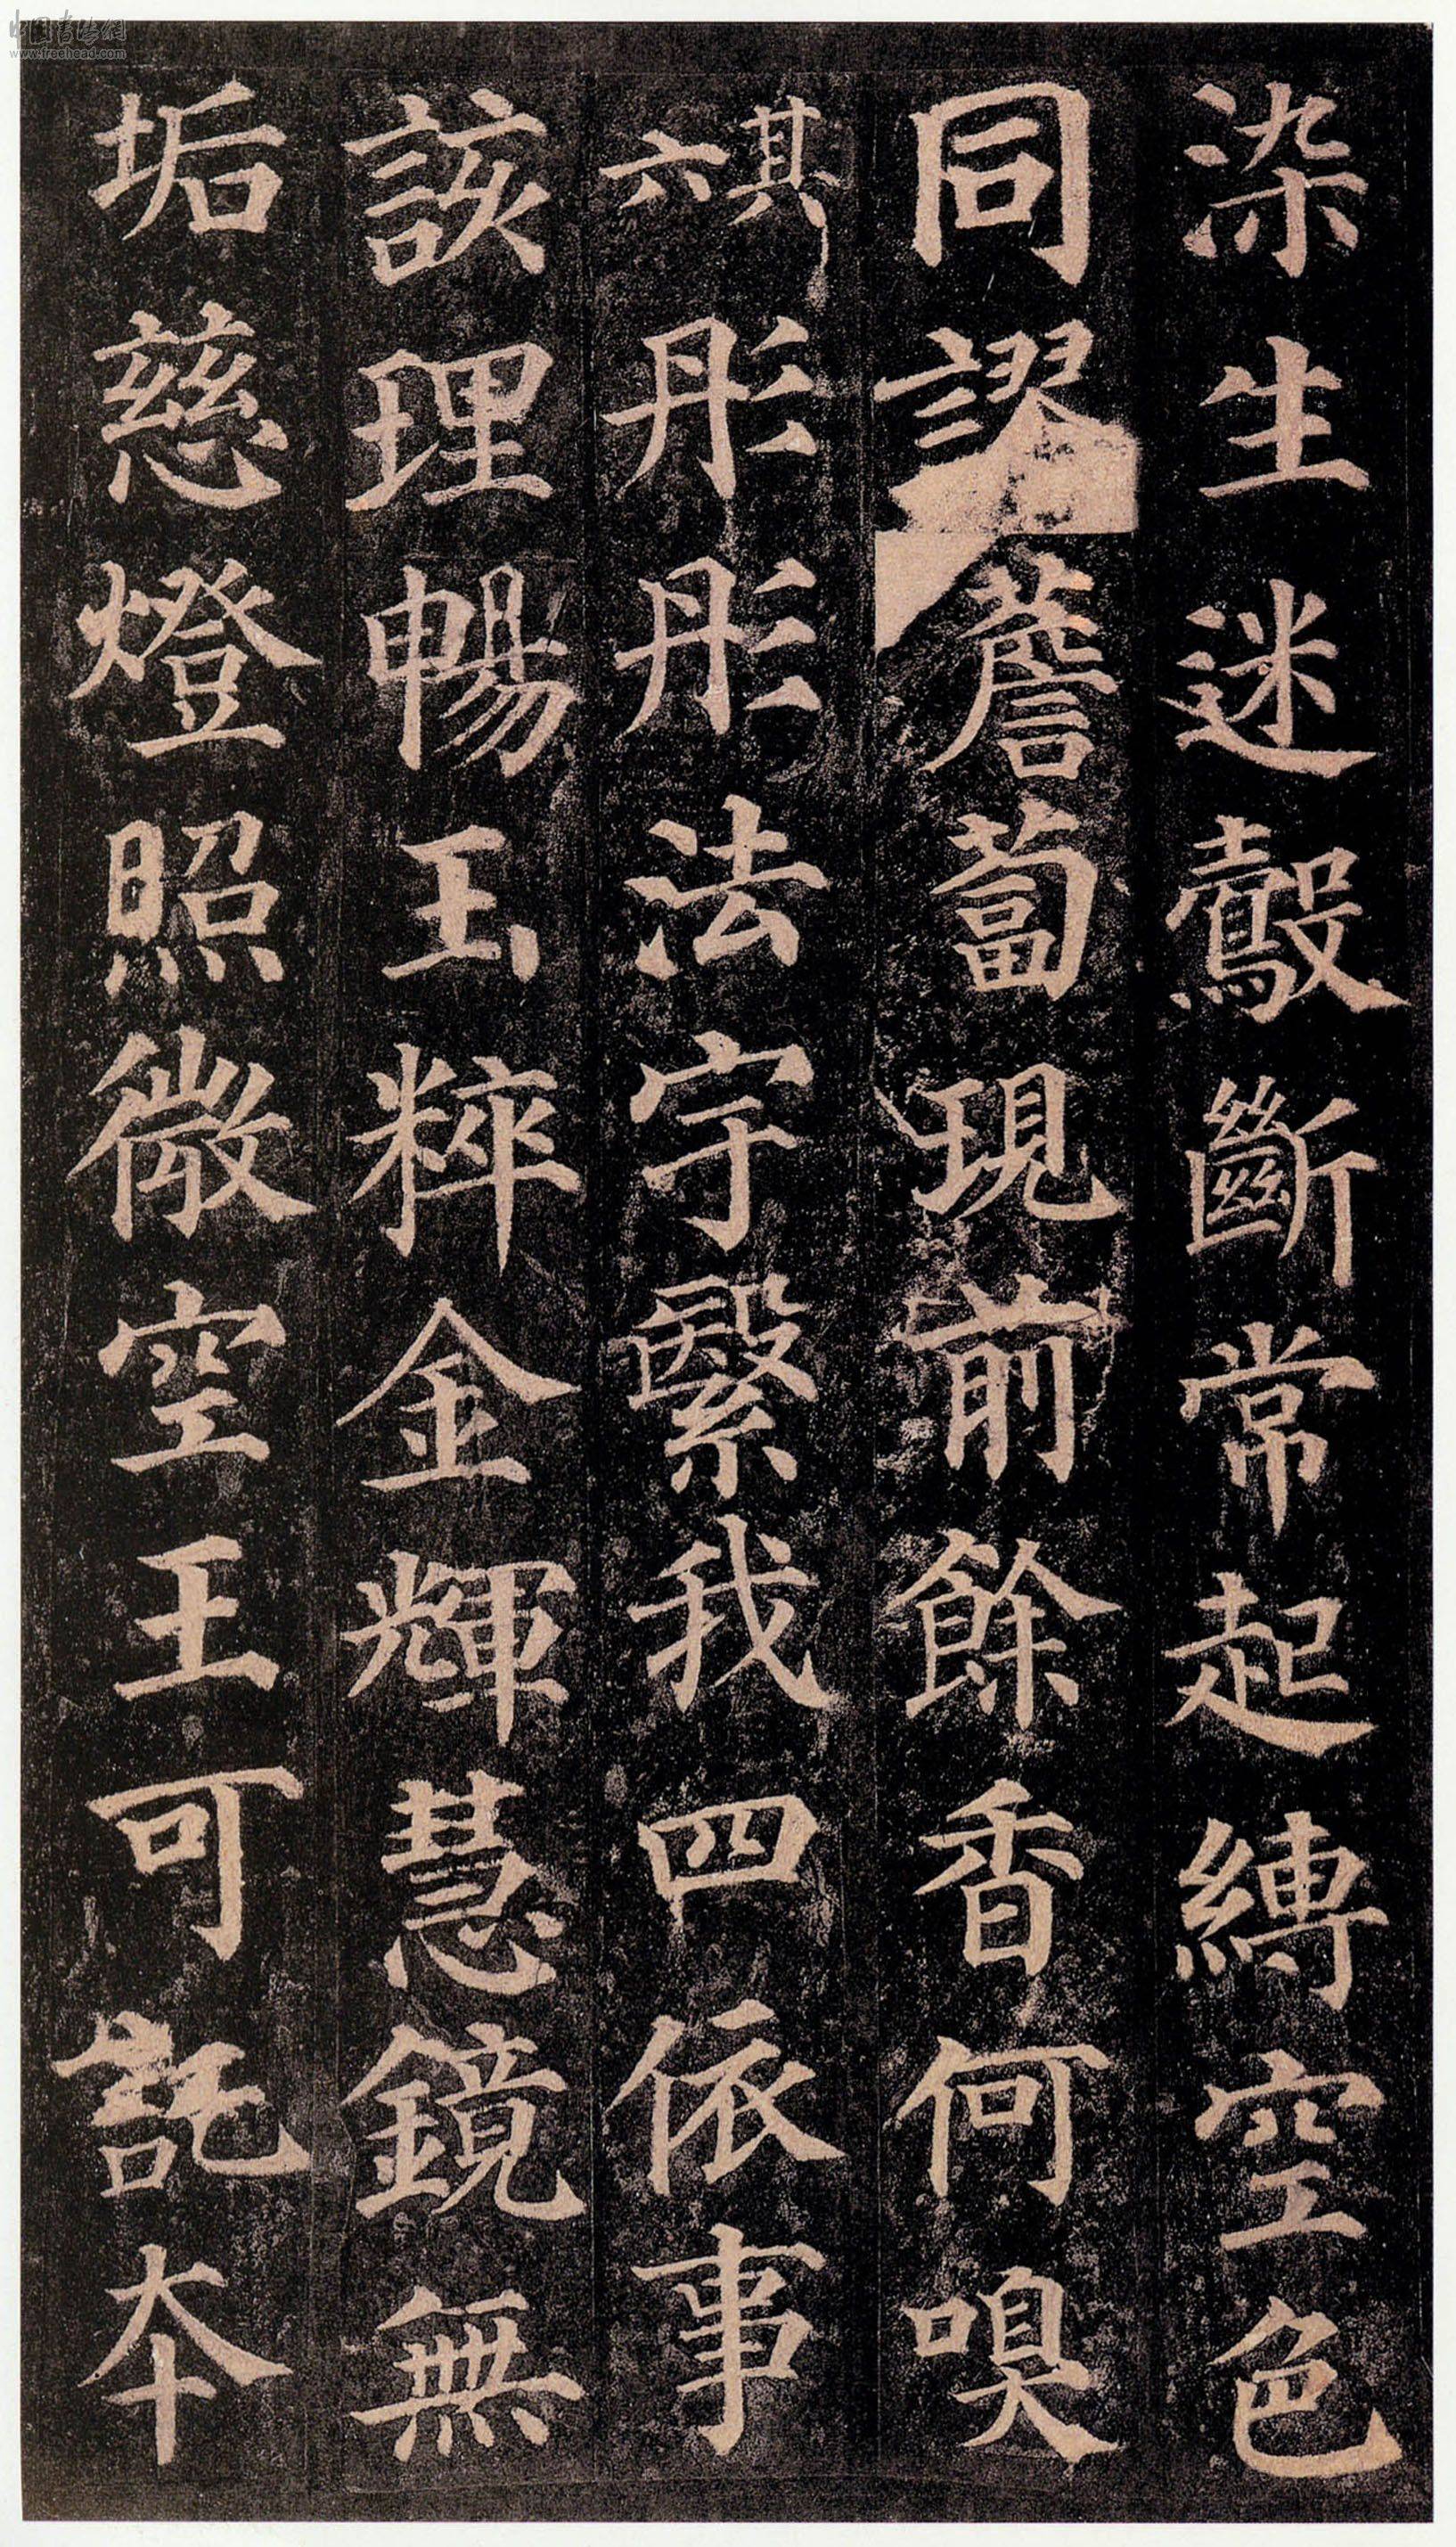 染生迷鷇斷常起縛空色
同謬薝蔔現前餘香何嗅
其六彤彤法宇繄我四依事
該理暢玉粹金輝慧鏡無
垢慈燈照微空王可託本
中国书法网
www.freehead.com